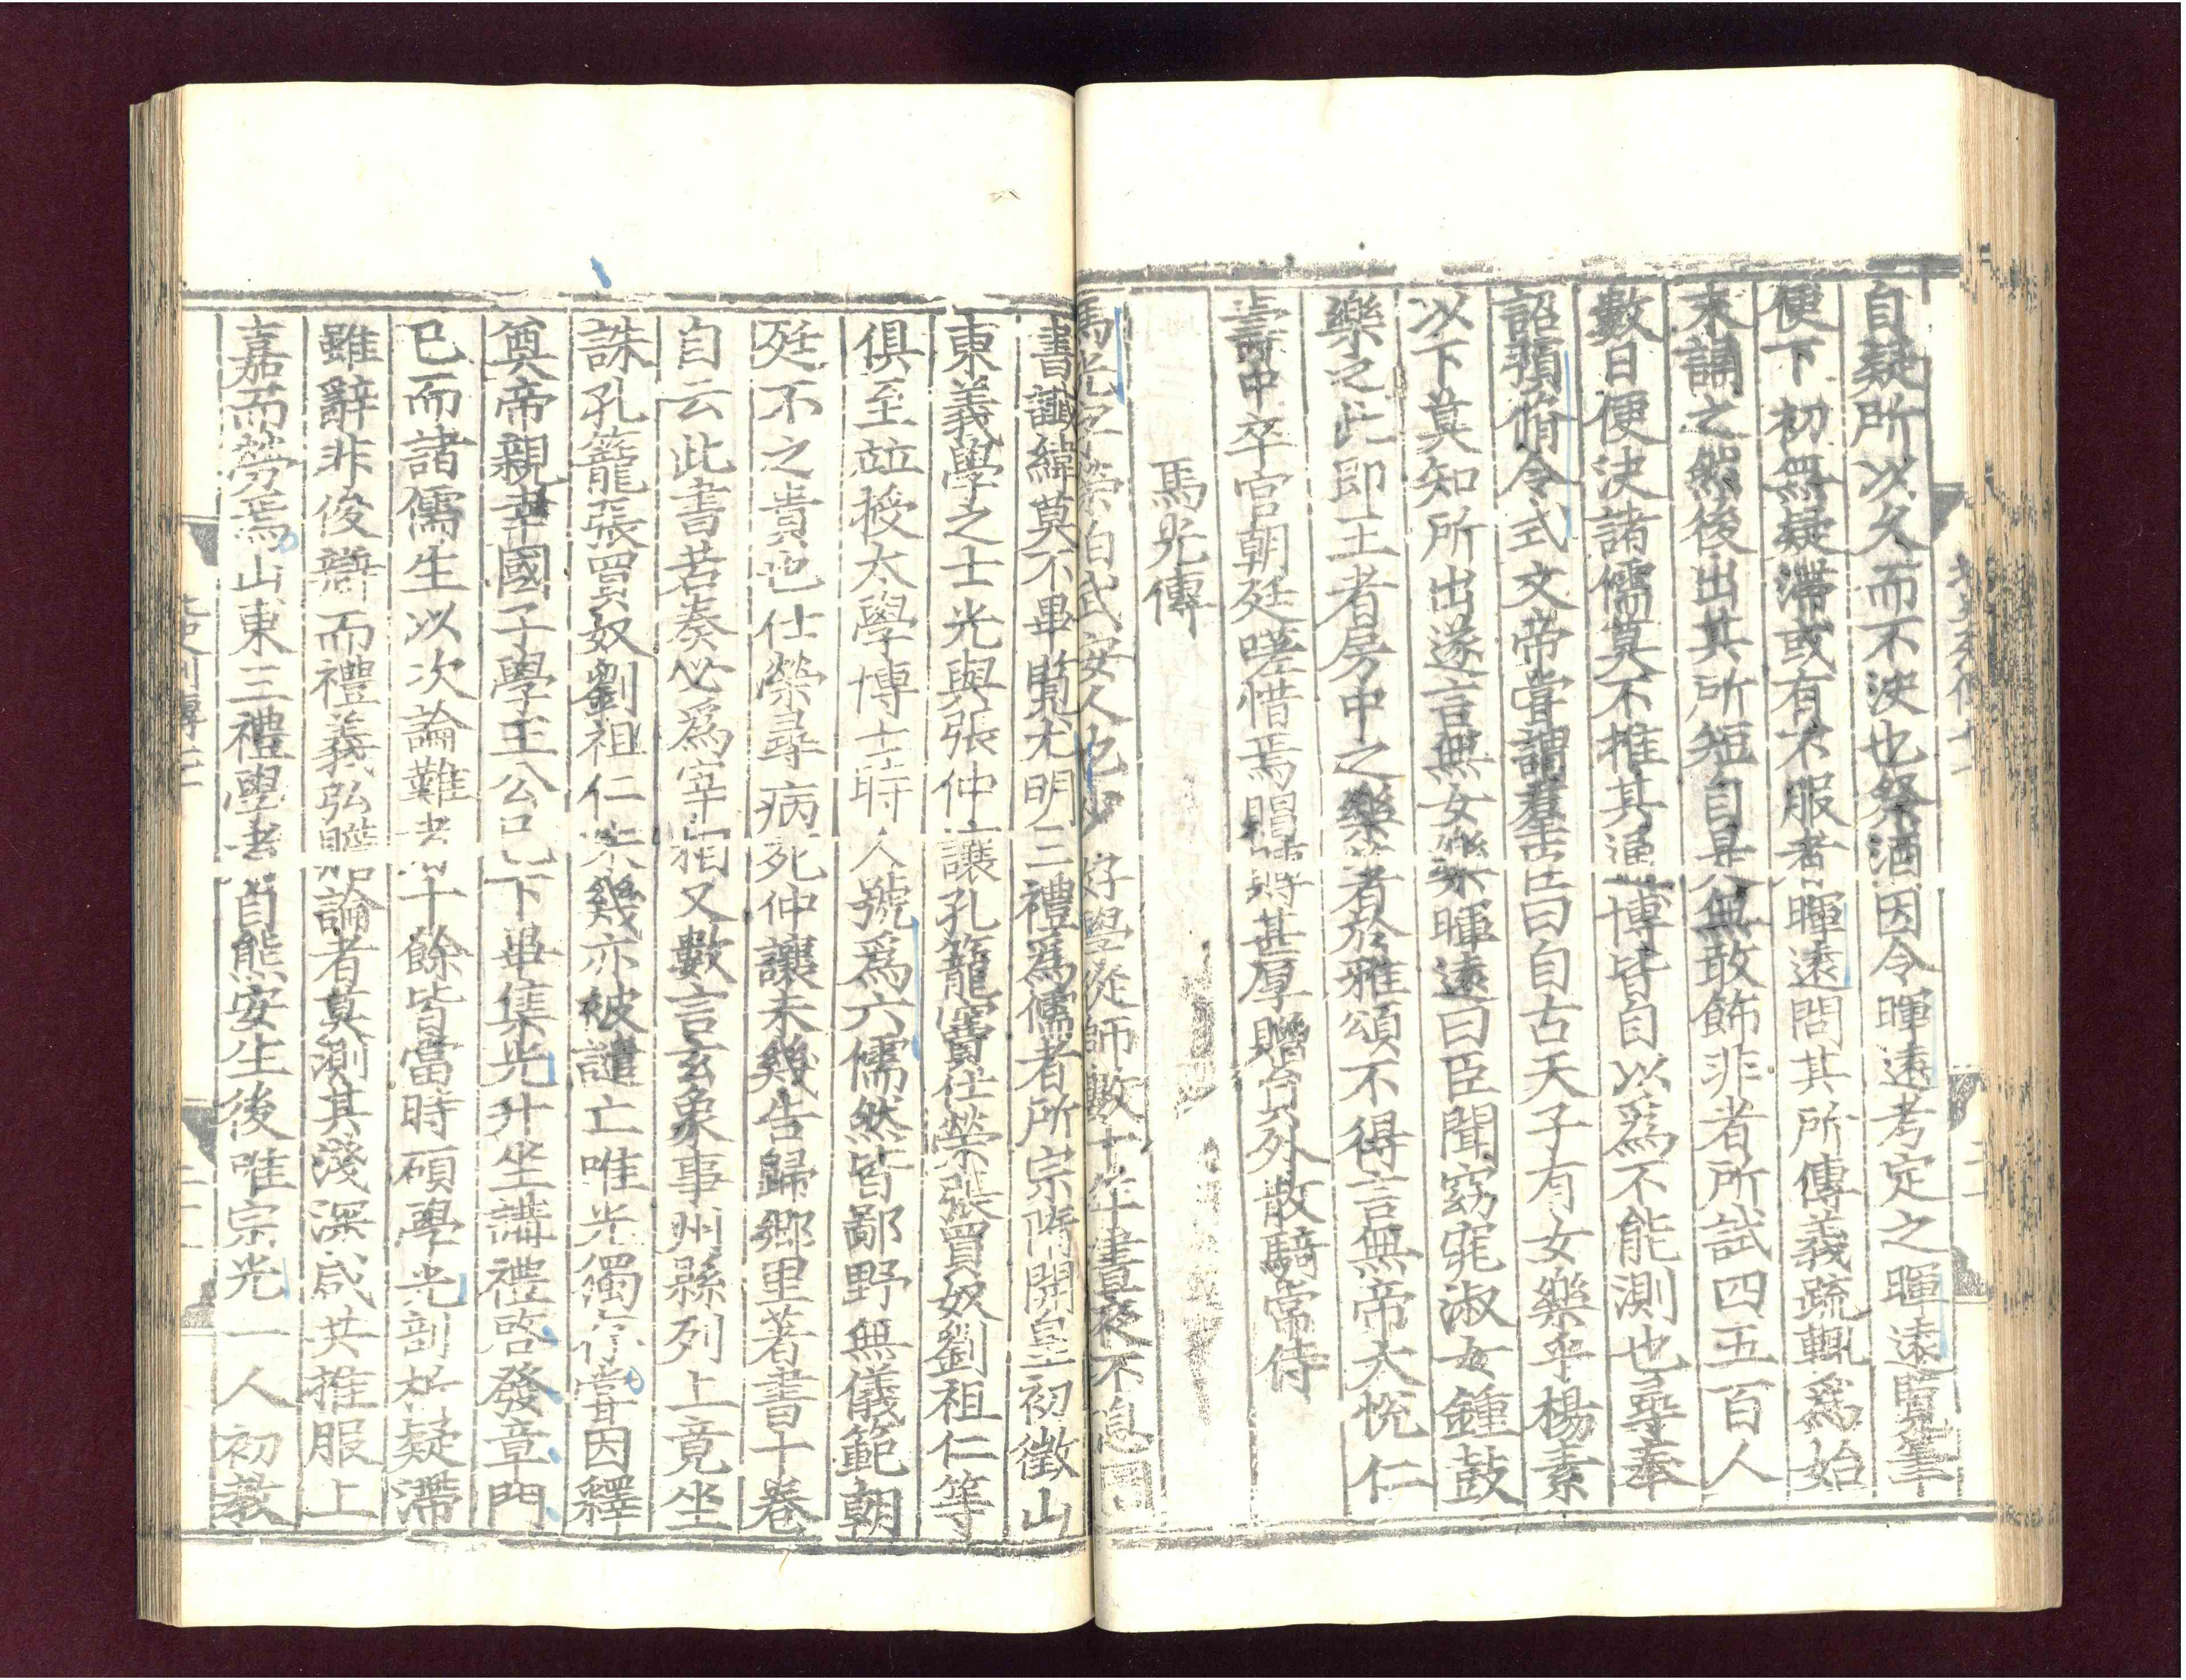 自疑所以久而不決也祭酒因令暉遠考定之暉遠覽筆
便下初無疑滯或有不服者暉遠問其所傳義疏輒為始
末誦之然後出其所短自是無敢飾非者所試四五百人
數日便決諸儒莫不推其通博皆自以爲不能測也尋奉
詔預脩令式文帝嘗謂羣臣曰自古天子有女樂乎楊素
以下莫知所出遂言無女樂暉遠曰臣聞窈窕淑女鍾鼓
樂之此即王者房中之樂著於雅頌不得言無帝大悅仁
壽中卒官朝廷嗟惜焉賵賻甚厚贈員外散騎常侍
馬光傳
馬光字榮伯武安人也少好學從師數十年晝夜不息圖
書讖緯莫不畢覽尤明三禮爲儒者所宗隋開皇初徵山
東義學之士光與張仲讓孔籠竇仕榮張買奴劉祖仁等
俱至竝授太學博士時人號爲六儒然皆鄙野無儀範朝
廷不之貴也仕榮尋病死仲讓未幾告歸鄉里著書十卷
自云此書若奏必爲宰相又數言玄象事州縣列上竟坐
誅孔籠張買奴劉祖仁未幾亦被譴亡唯光獨存嘗因釋
奠帝親幸國子學王公已下畢集光升坐講禮啓發章門
已而諸儒生以次論難者十餘皆當時碩學光剖析疑滯
雖辭非俊辯而禮義弘贍論者莫測其淺深咸共推服上
嘉而勞焉山東三禮學者自熊安生後唯宗光一人初教